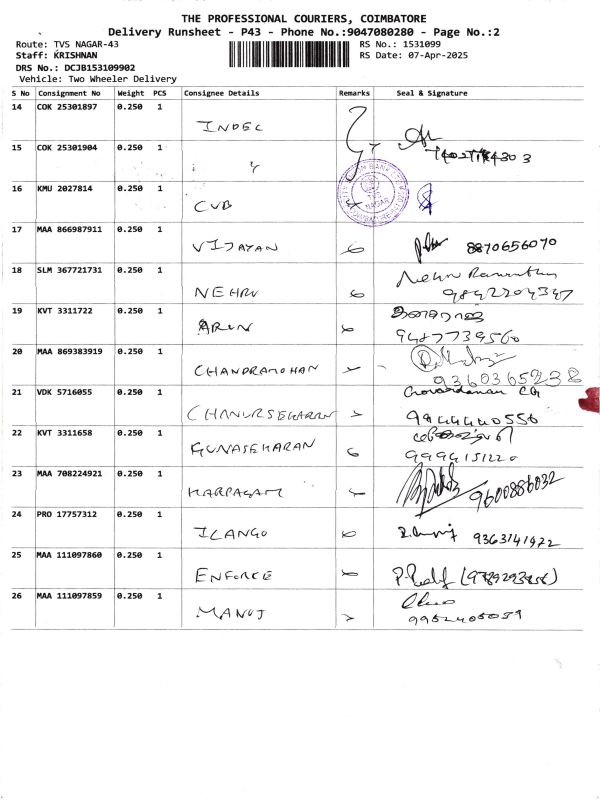 THE PROFESSIONAL COURIERS, COIMBATORE
Delivery Runsheet - P43 - Phone No.:9047080280 - Page No.:2
Route: TVS NAGAR-43 RS No.: 1531099
Staff: KRISHNAN RS Date: 07-Apr-2025
DRS No.: DCJB153109902
Vehicle: Two Wheeler Delivery
S No Consignment No Weight PCS Consignee Details Remarks Seal & Signature
14 COK 25301897 0.250 1
INDEL
15 COK 25301904 0.250 1
16 KMU 2027814 0.250 1
TVS
NAGAR
CUB
17 MAA 866987911 0.250 1
VIJAYAN 8870656070
18 SLM 367721731 0.250 1
NEHRU 9842204347
19 KVT 3311722 0.250 1
ARUN 9487739560
20 MAA 869383919 0.250 1
CHANDRAMOHAN 9360365238
21 VDK 5716055 0.250 1
9944440556
22 KVT 3311658 0.250 1
GUNASEKARAN 9994151220
23 MAA 708224921 0.250 1
KARPAGAM 9600886032
24 PRO 17757312 0.250 1
ILANGO 9363141922
25 MAA 111097860 0.250 1
ENFORCE
26 MAA 111097859 0.250 1
MANOJ 9952405059